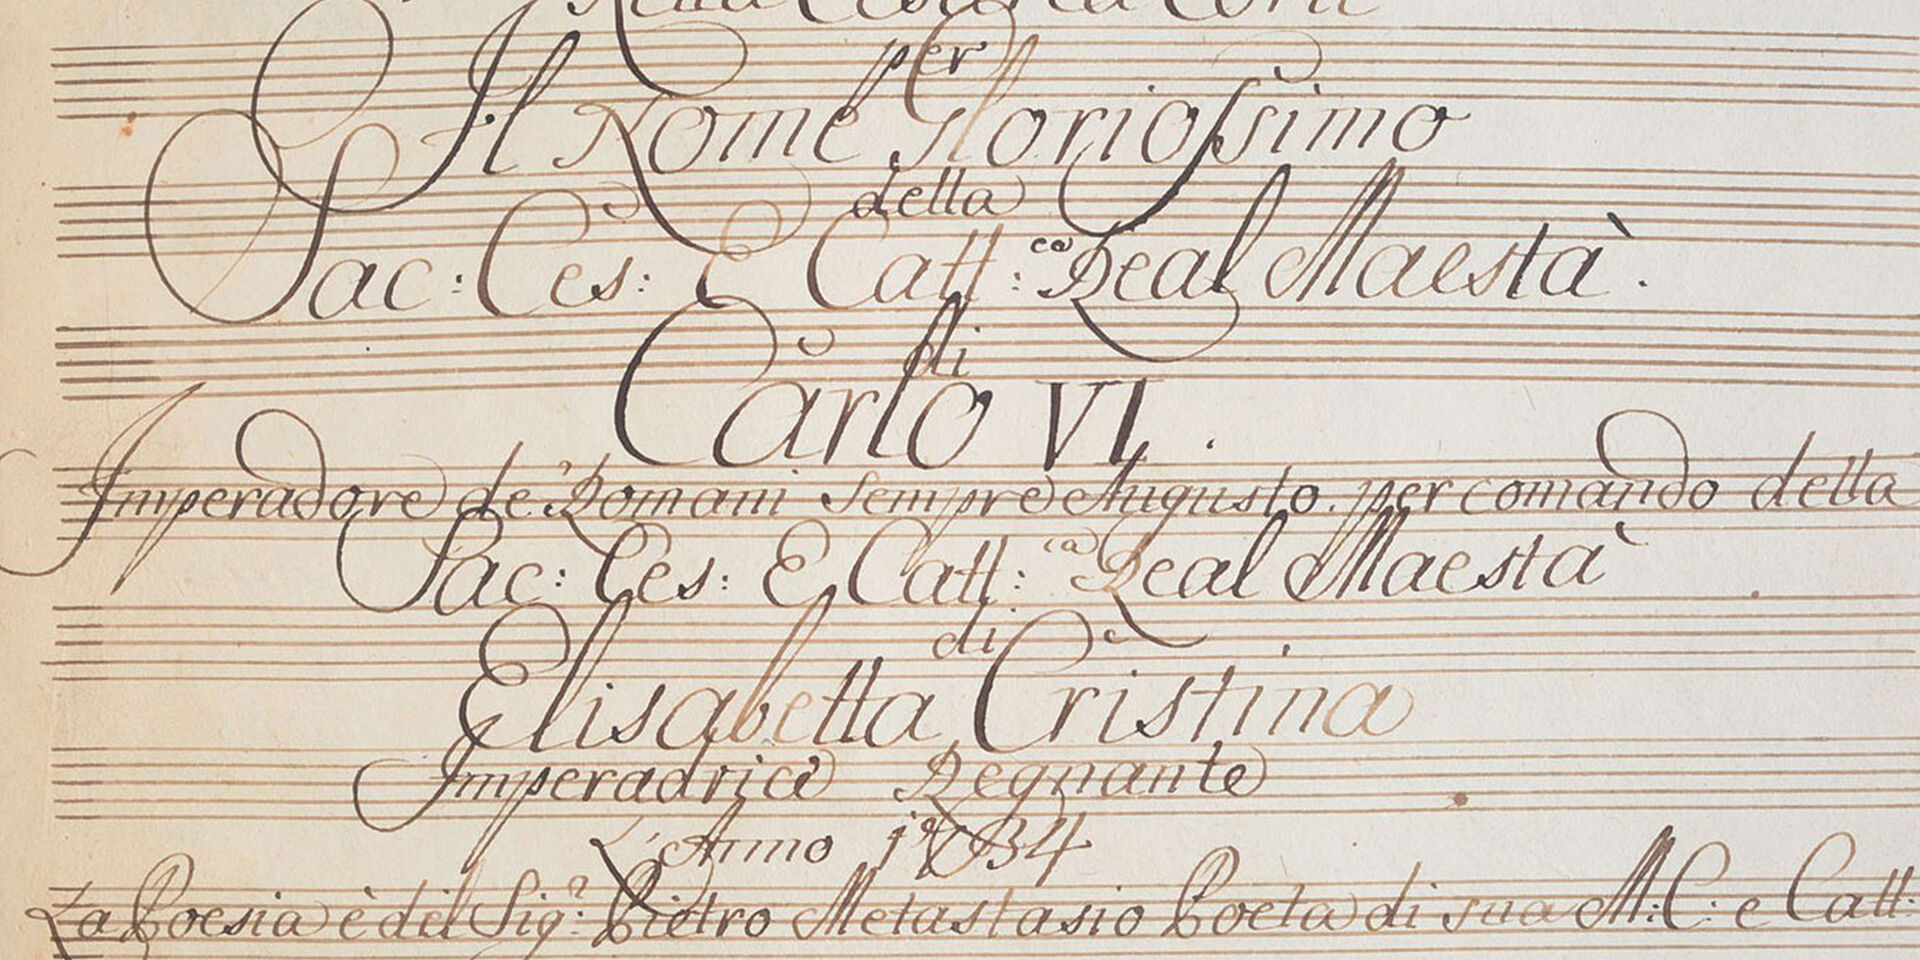 Nella Cesarea Corte
per
Il Nome Gloriosſimo
della
Sac: Ces: E Catt: ca Real Maestà.
di
Carlo VI.
Imperadore de' Romani sempre Augusto. per comando della
Sac: Ces: E Catt: ca Real Maestà
di
Elisabetta Cristina
Imperadrice Regnante
L'Anno 1734
La Poesia è del Sigr: Pietro Metastasio Poeta di sua M: C: e Catt: